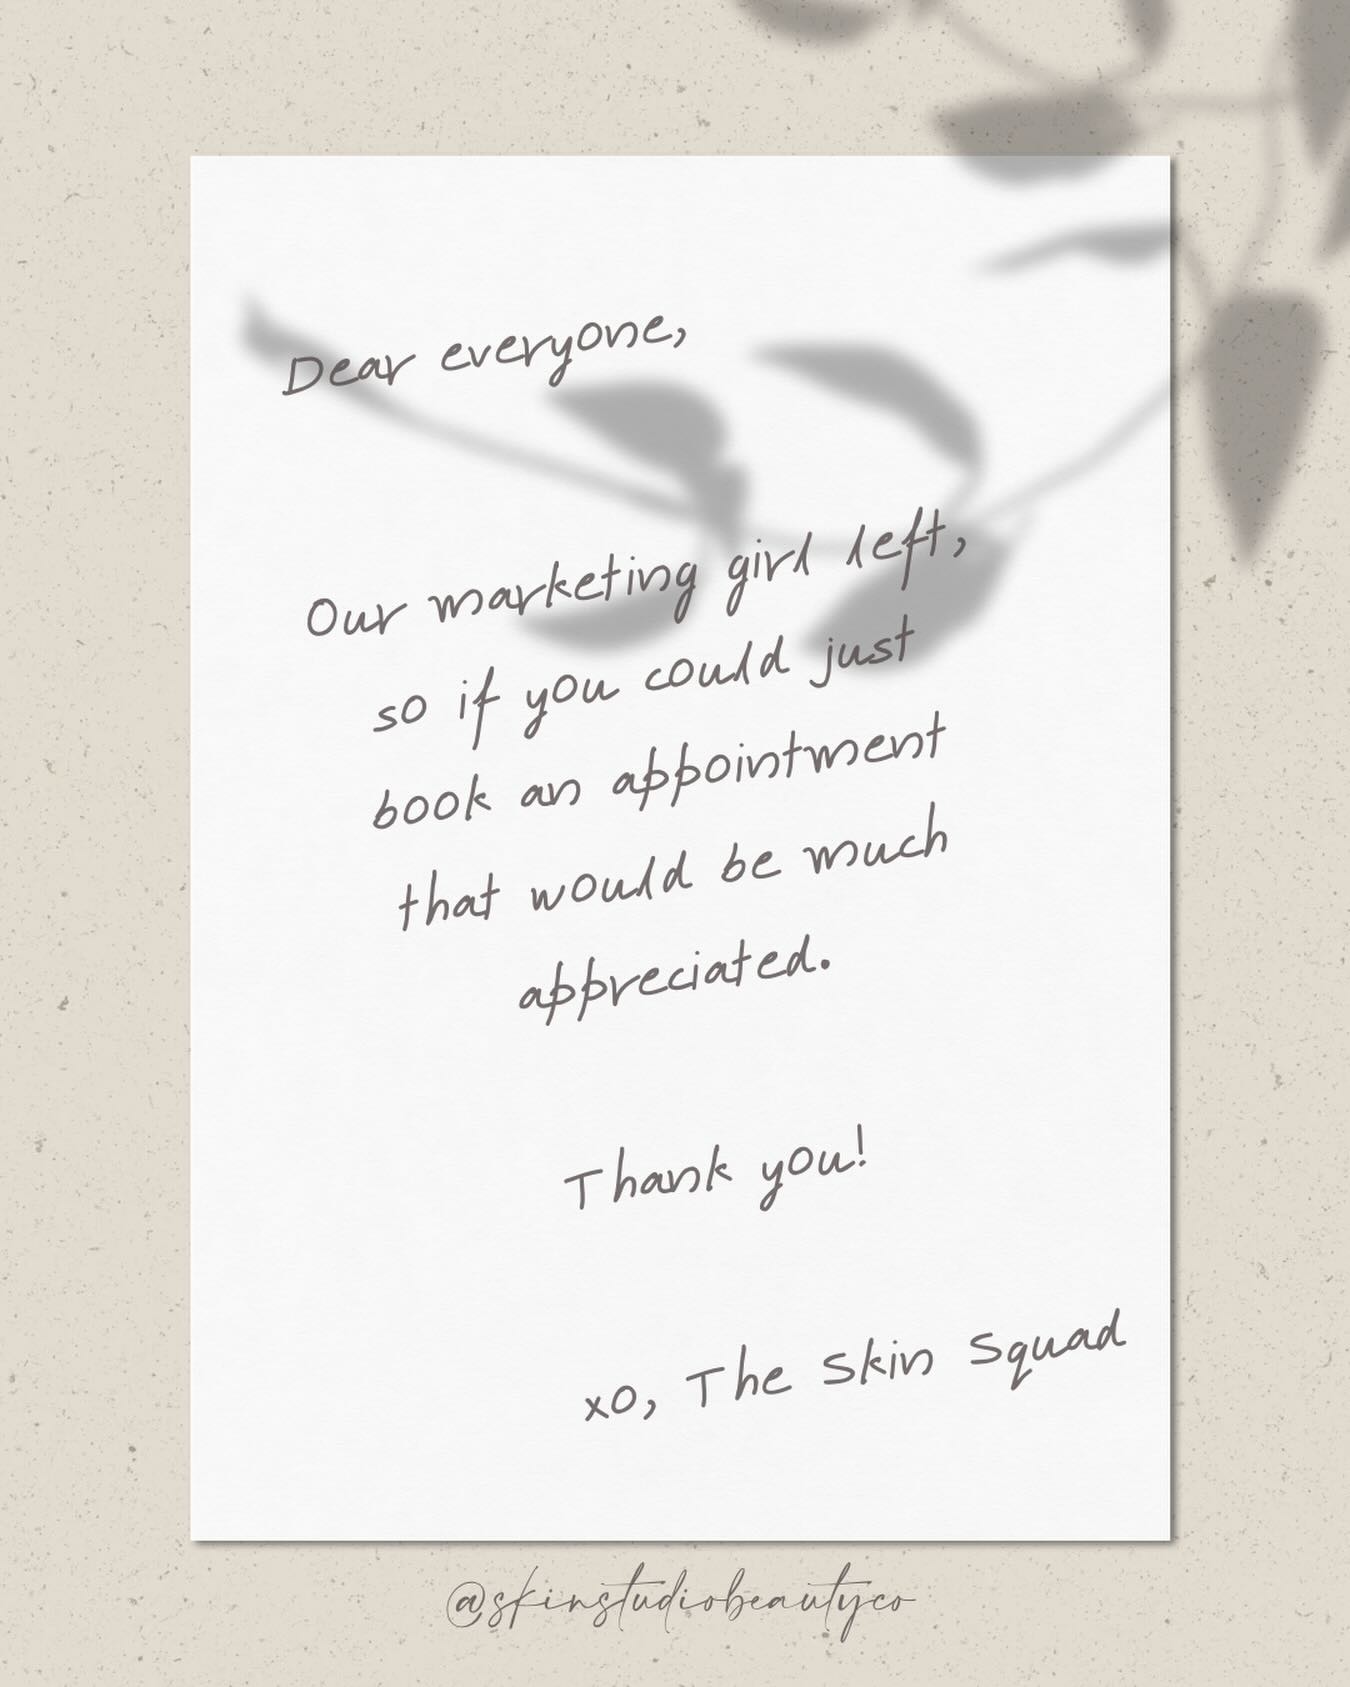 Dear everyone,
Our marketing girl left,
so if you could just
book an appointment
that would be much
appreciated.
Thank you!
xo, The Skin Squad
@skinstudiobeautyco